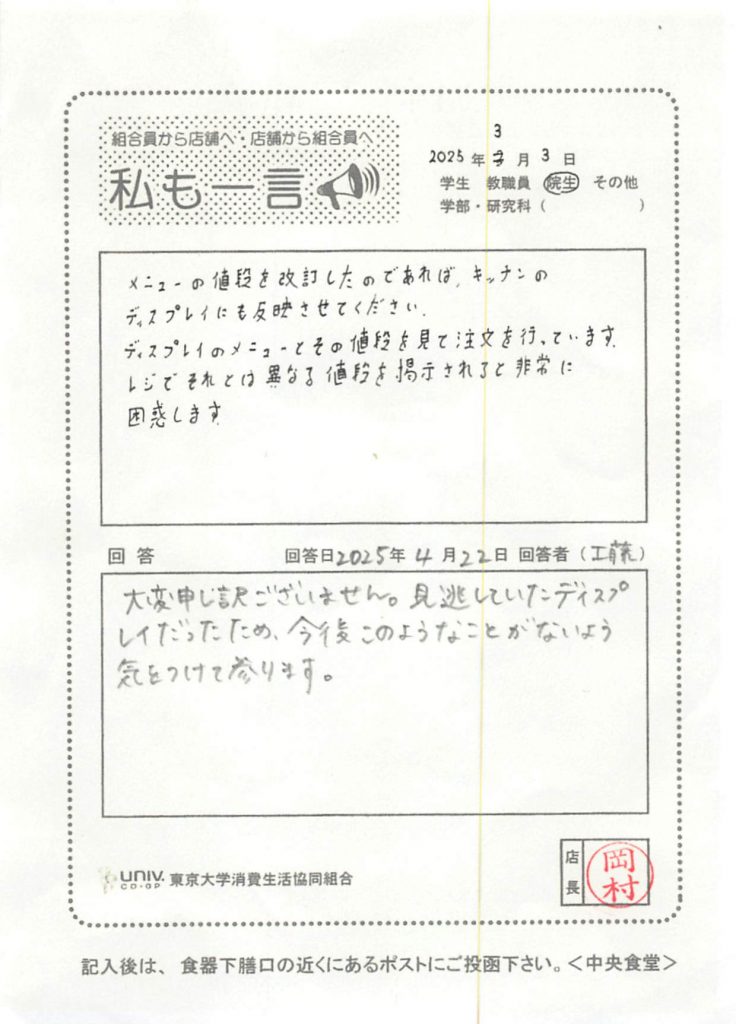 組合員から店舗へ・店舗から組合員へ
私も一言
3
2025年3月3日
学生 教職員 院生 その他
学部・研究科( )
メニューの値段を改訂したのであれば、キッチンの
ディスプレイにも反映させてください.
ディスプレイのメニューとその値段を見て注文を行っています.
レジでそれとは異なる値段を掲示されると非常に
困惑します
回答 回答日2025年4月22日 回答者(工藤)
大変申し訳ございません。見逃していたディスプ
レイだったため、今後このようなことがないよう
気をつけて参ります。
店長
岡村
UNIV. CO・OP 東京大学消費生活協同組合
記入後は、食器下膳口の近くにあるポストにご投函下さい。<中央食堂>